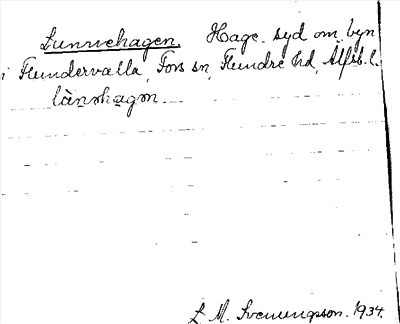 Lunnehagen. Hage. syd om byn
i Flundervalla, Fors sn, Flundre hd, Älfsb. l.
lànnhagɷn.
L. M. Svenungsson. 1934.